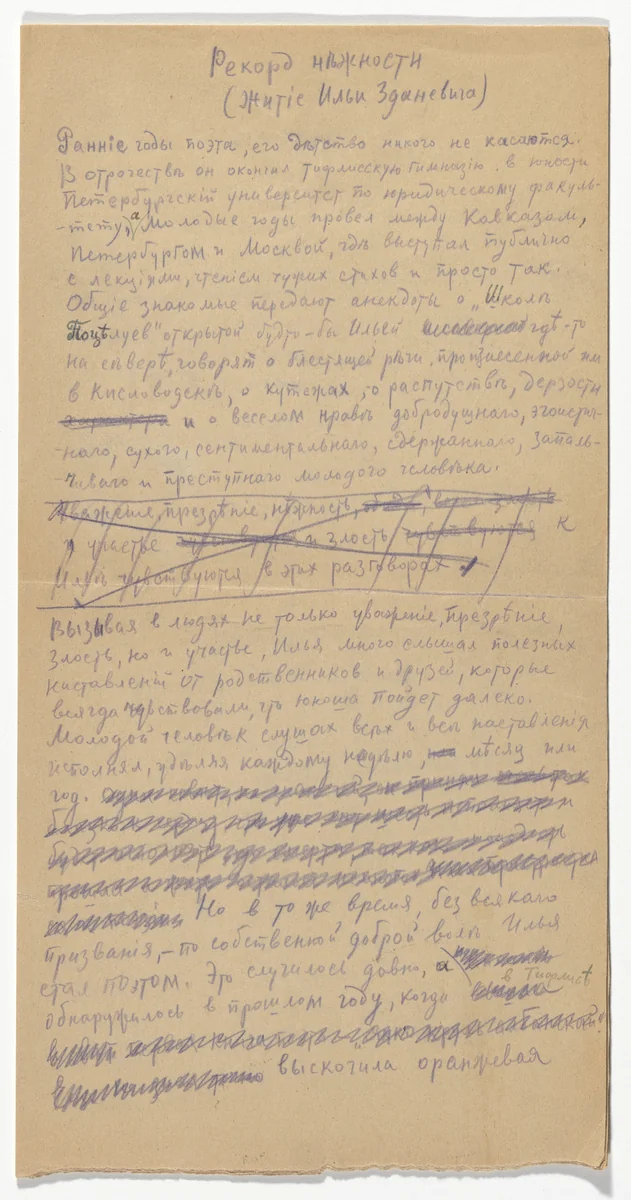 Рекорд нѣжности
(Житіе Ильи Зданевича)
Ранніе годы поэта, его дѣтство никого не касаются.
В отрочествѣ он окончил Тифлисскую гимназію, в юности
Петербургскій университет по юридическому факуль-
-тету, а Молодые годы провел между Кавказом,
Петербургом и Москвой, гдѣ выступал публично
с лекціями, чтеніем чужих стихов и просто так.
Общіе знакомые передают анекдоты о „Школѣ
Поцѣлуев" открытой будто-бы Ильей гдѣ-то
на сѣверѣ, говорят о блестящей рѣчи, произнесенной им
в Кисловодскѣ, о кутежах, о распутствѣ, дерзости
характера и о веселом нравѣ добродушнаго, эгоистич-
-наго, сухого, сентиментальнаго, сдержаннаго, запаль-
-чиваго и преступнаго молодого человѣка.
Уваженіе, презрѣніе, нѣжность,
и участье и злость чувствуются к
Ильѣ чувствуются в этих разговорах.
Вызывая в людях не только уваженіе, презрѣніе,
злость, но и участье, Илья много слышал полезных
наставленій от родственников и друзей, которые
всегда чувствовали, что юноша пойдет далеко.
Молодой человѣк слушал всѣх и всѣ наставленія
исполнял, удѣляя каждому недѣлю, мѣсяц или
год.
Но в то же время, без всякаго
призванія, – по собственной доброй волѣ Илья
стал поэтом. Это случилось давно, а
обнаружилось в прошлом году, когда в Тифлисѣ
выскочила оранжевая